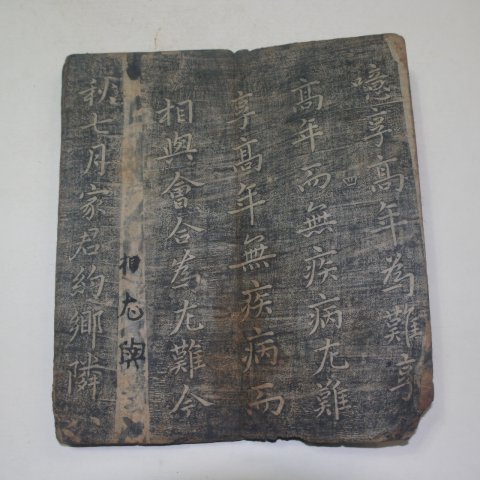 噫享高年為難享
高年而無疾病尤難
享高年無疾病而
相與會合為尤難今
相尤與
秋七月家君約鄉隣